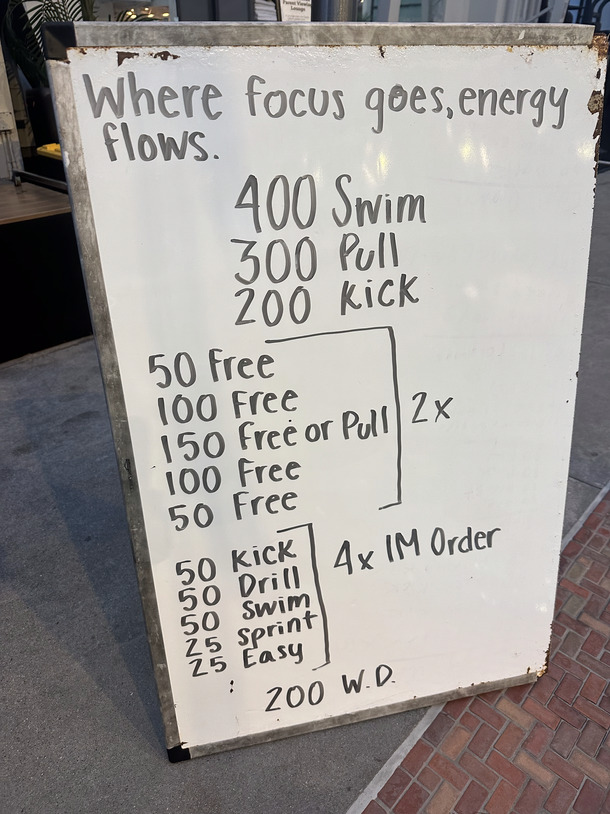 Parent Viewing
Lounge
Where focus goes, energy
flows.
400 Swim
300 Pull
200 Kick
50 Free
100 Free
150 Free or Pull
100 Free
50 Free
2x
50 Kick
50 Drill
50 Swim
25 Sprint
25 Easy
4x IM Order
200 W.D.